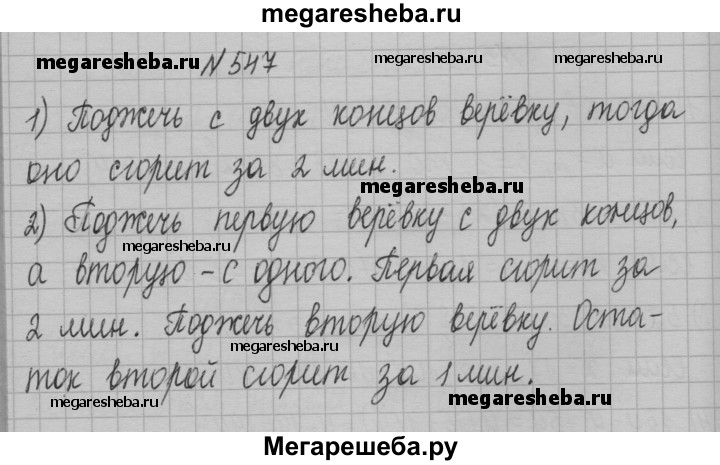 megaresheba.ru
megaresheba.ru № 547 megaresheba.ru
1) Поджечь с двух концов верёвку, тогда
оно сгорит за 2 мин.
megaresheba.ru
2) Поджечь первую верёвку с двух концов,
megaresheba.ru megaresheba.ru
а вторую – с одного. Первая сгорит за
2 мин. Поджечь вторую верёвку. Оста-
megaresheba.ru
ток второй сгорит за 1 мин.
megaresheba.ru megaresheba.ru
Мегарешеба.ру